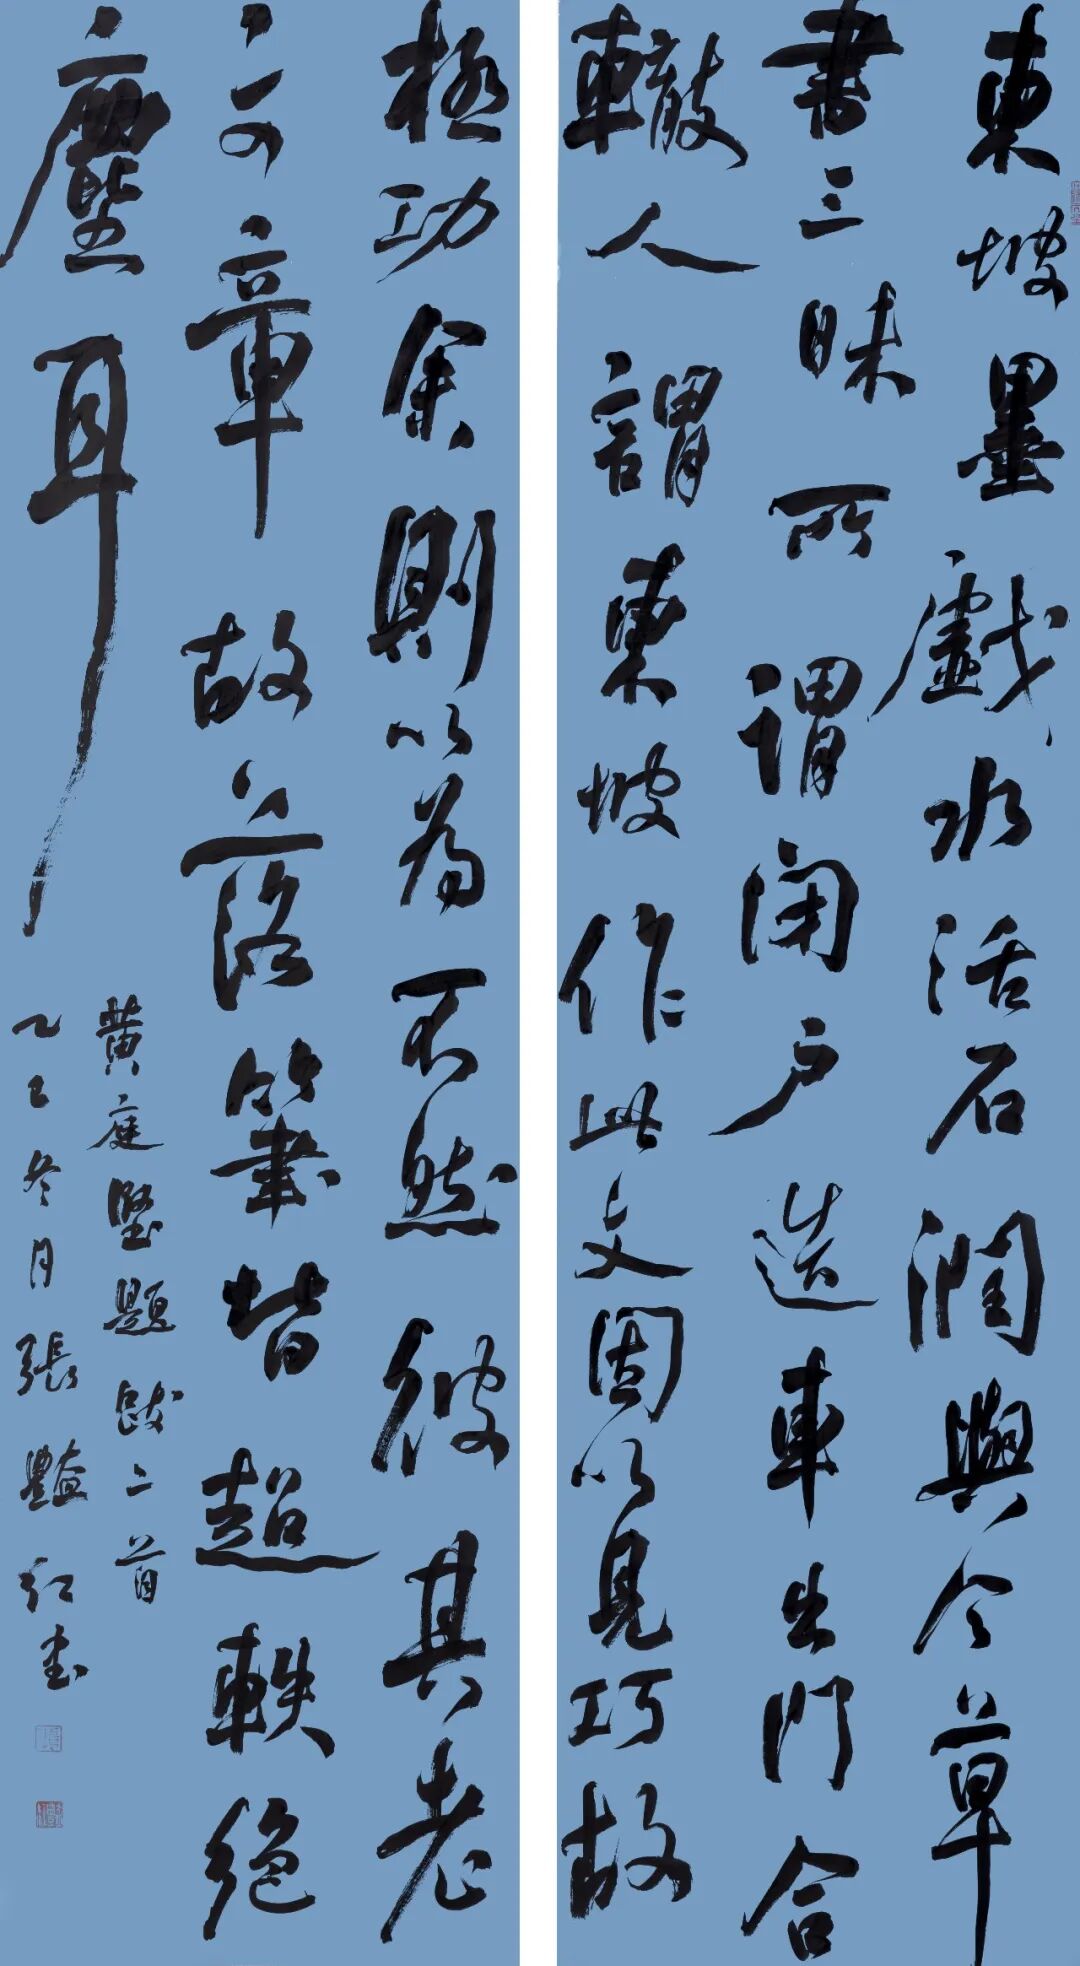 東坡墨戲水活石潤與今草
書三昧所謂閉户造車出門合
轍人謂東坡作此文因以見巧故
極功余則以為不然彼其老
於文章故落筆皆超軼絕
塵耳
黄庭堅題跋二首
乙巳冬月張艷紅書